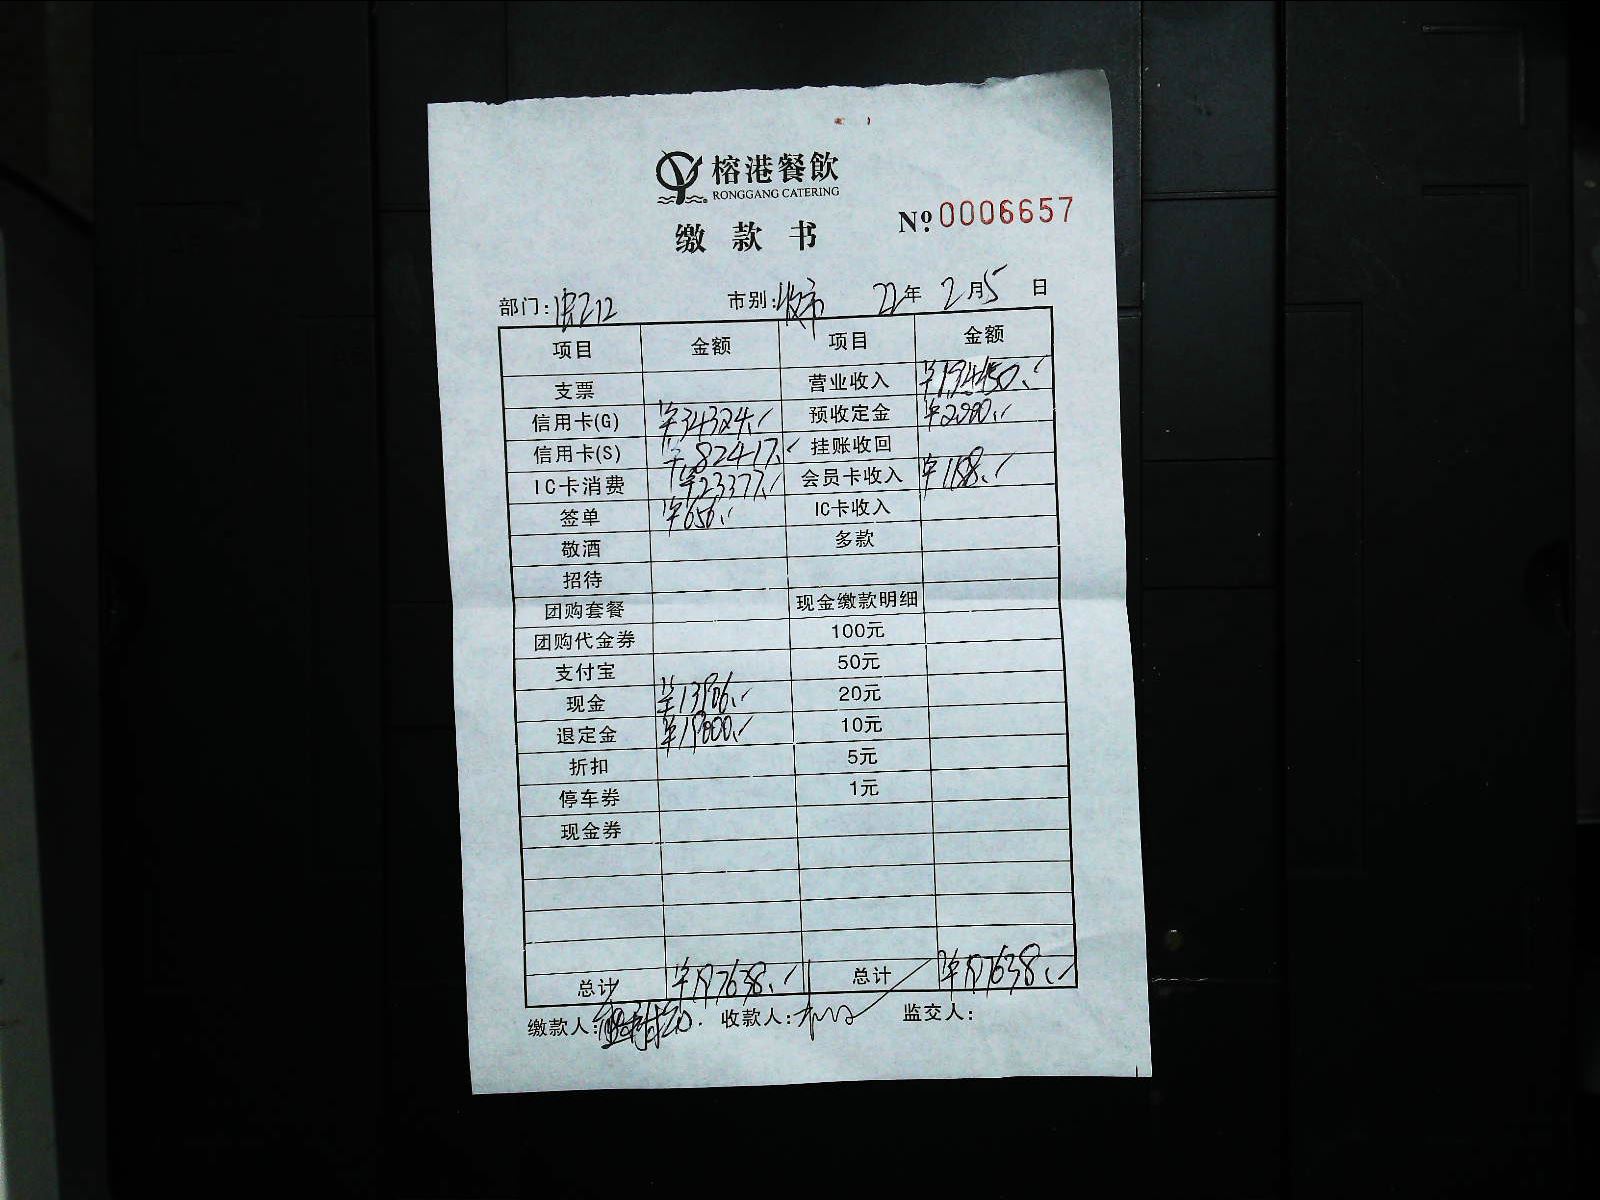 榕港餐飲
RONGGANG CATERING
缴款书
Nº.0006657
部门: 市别:收市 22年 2月5日
项目 金额 项目 金额
支票 营业收入 ¥194450.
信用卡(G) ¥34324. 预收定金 ¥2000.
信用卡(S) 82417. 挂账收回
IC卡消费 ¥23377. 会员卡收入 ¥1188.
签单 ¥656. IC卡收入
敬酒 多款
招待
团购套餐 现金缴款明细
团购代金券 100元
支付宝 50元
现金 ¥13906. 20元
退定金 ¥19000. 10元
折扣 5元
停车券 1元
现金券
总计 ¥197638. 总计 ¥197638.
缴款人: 收款人: 监交人: